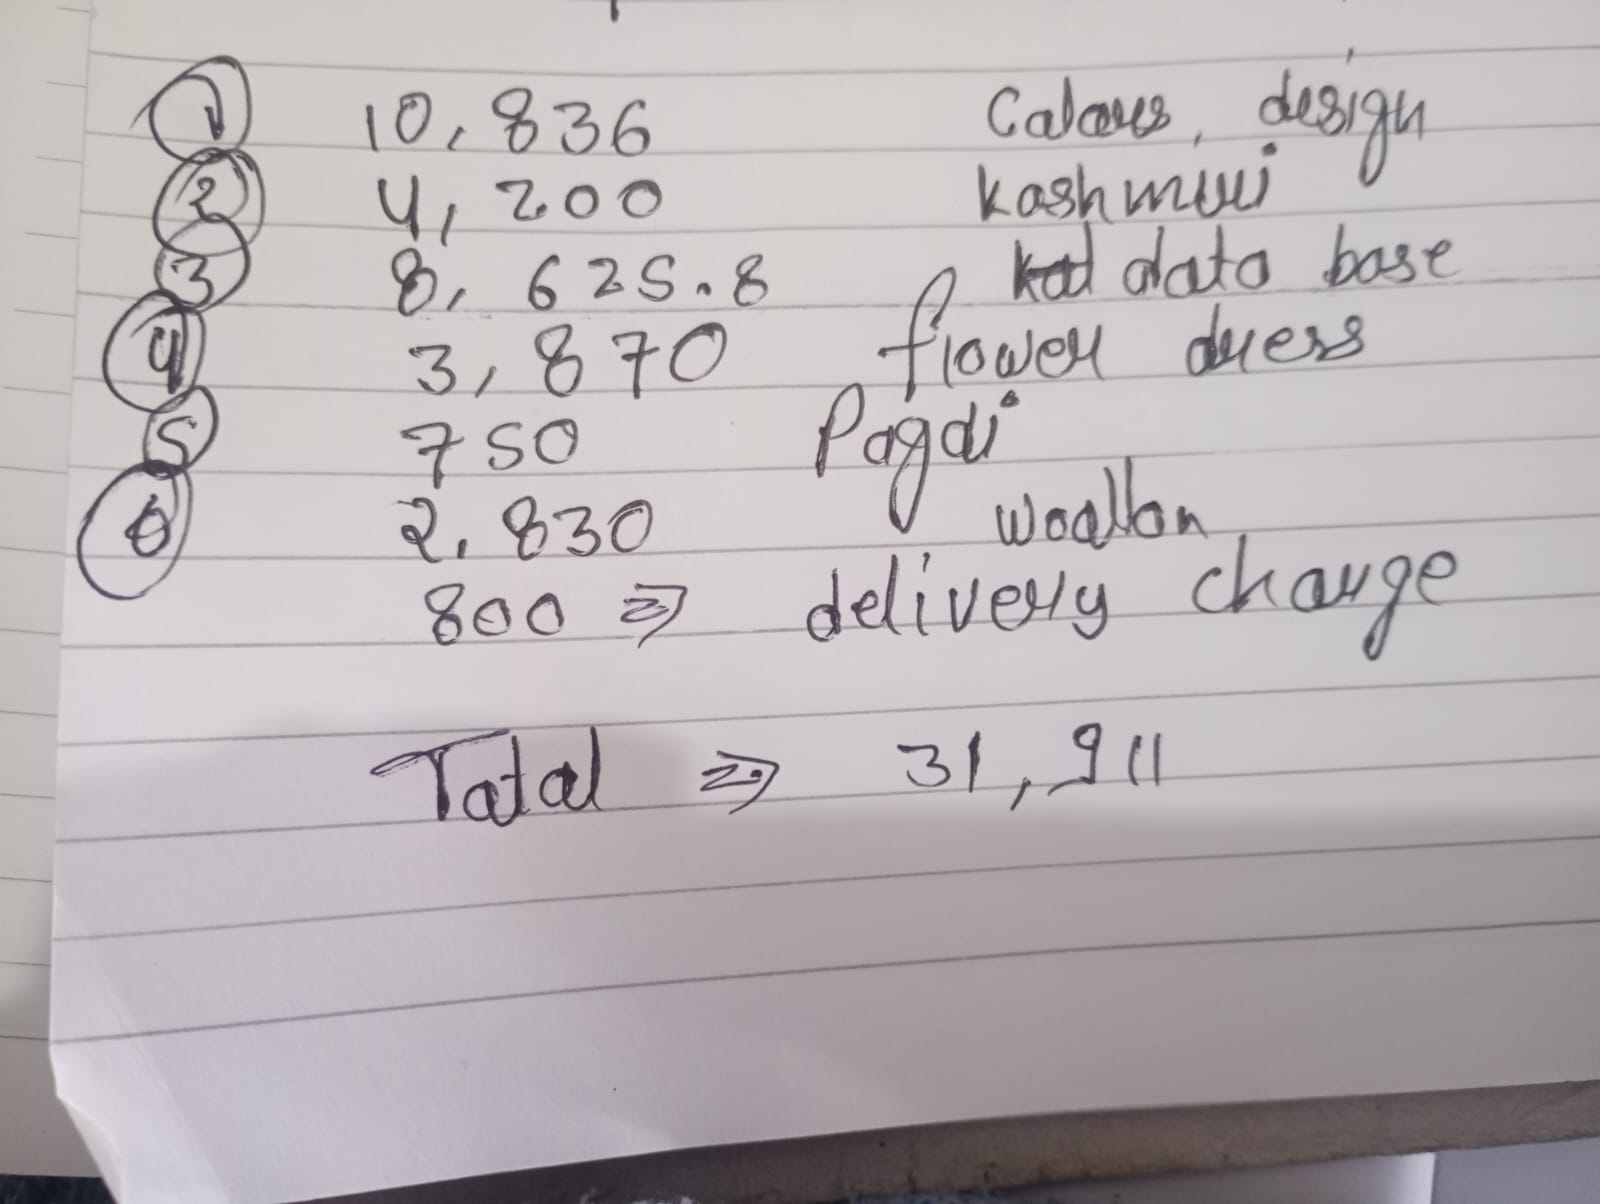 1 10,836 Calours, design
2 4,200 kashmiri
3 8,625.8 data base
4 3,870 flower dress
5 750 Pagdi
6 2,830 woollon
800 ⇒ delivery charge
Tatal ⇒ 31,911